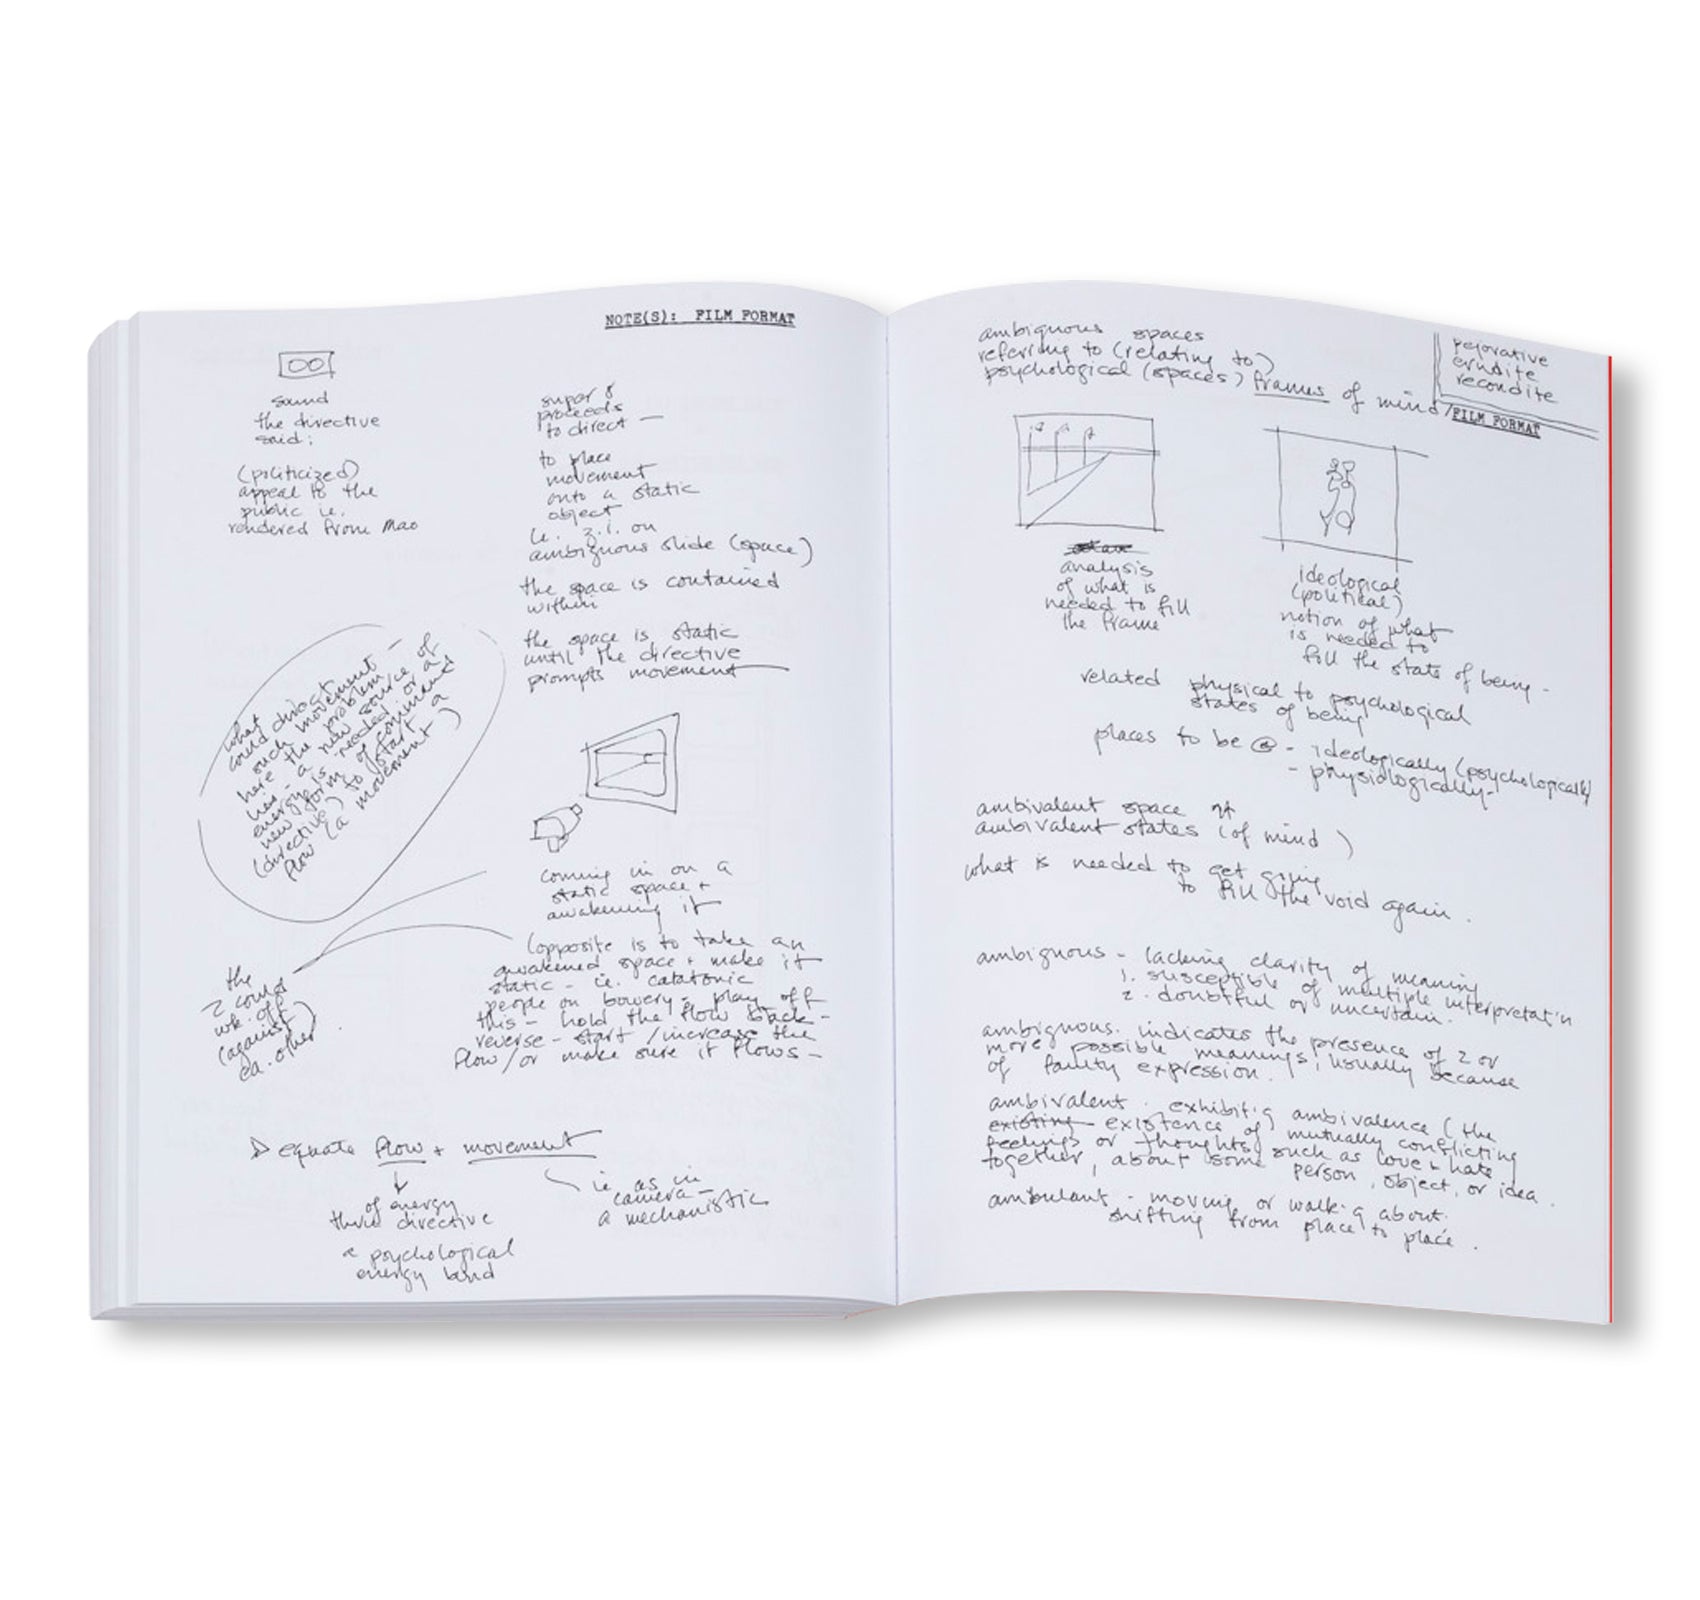 NOTE(S): FILM FORMAT
sound
the directive
said:
(politicized)
appeal to the
public i.e.
rendered from Mao
super 8
proceeds
to direct —
to place
movement
onto a static
object
i.e. z.i. on
ambiguous slide (space)
the space is contained
within
the space is static
until the directive
prompts movement
what
could direct
such movement —
here the problem
lies - a new source of
energy is needed or a
new form of command
(directive) to start a
flow (a movement)
coming in on a
static space +
awakening it
(opposite is to take an
awakened space + make it
static - i.e. catatonic
people on bowery - play off
this - hold the flow back -
reverse - start / increase the
flow / or make sure it flows -
the
2 could
wk. off
(against)
ea. other
equate flow + movement
of energy
thru directive
a psychological
energy band
ie as in
camera -
a mechanistic
ambiguous spaces
referring to (relating to)
psychological (spaces) frames of mind /
pejorative
erudite
recondite
FILM FORMAT
analysis
of what is
needed to fill
the frame
ideological
(political)
notion of what
is needed to
fill the state of being -
related physical to psychological
states of being
places to be @ - ideologically (psychologically)
- physiologically -
ambivalent space
ambivalent states (of mind)
what is needed to get going
to fill the void again.
ambiguous - lacking clarity of meaning
1. susceptible of multiple interpretat'n
2. doubtful or uncertain.
ambiguous. indicates the presence of 2 or
more possible meanings, usually because
of faulty expression.
ambivalent. exhibit.g ambivalence (the
existing existence of mutually conflicting
feelings or thoughts, such as love + hate
together, about some person, object, or idea.
ambulant - moving or walk.g about.
shifting from place to place.